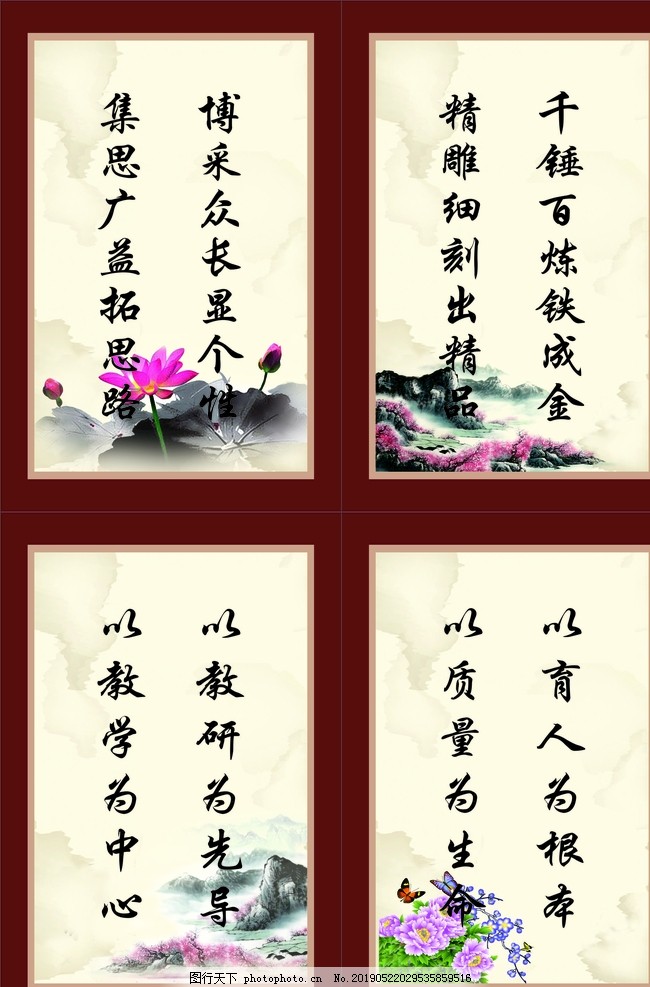 博采众长显个性
集思广益拓思路
千锤百炼铁成金
精雕细刻出精品
以教研为先导
以教学为中心
以育人为根本
以质量为生命
图行天下 photophoto.cn No.20190522029535859516